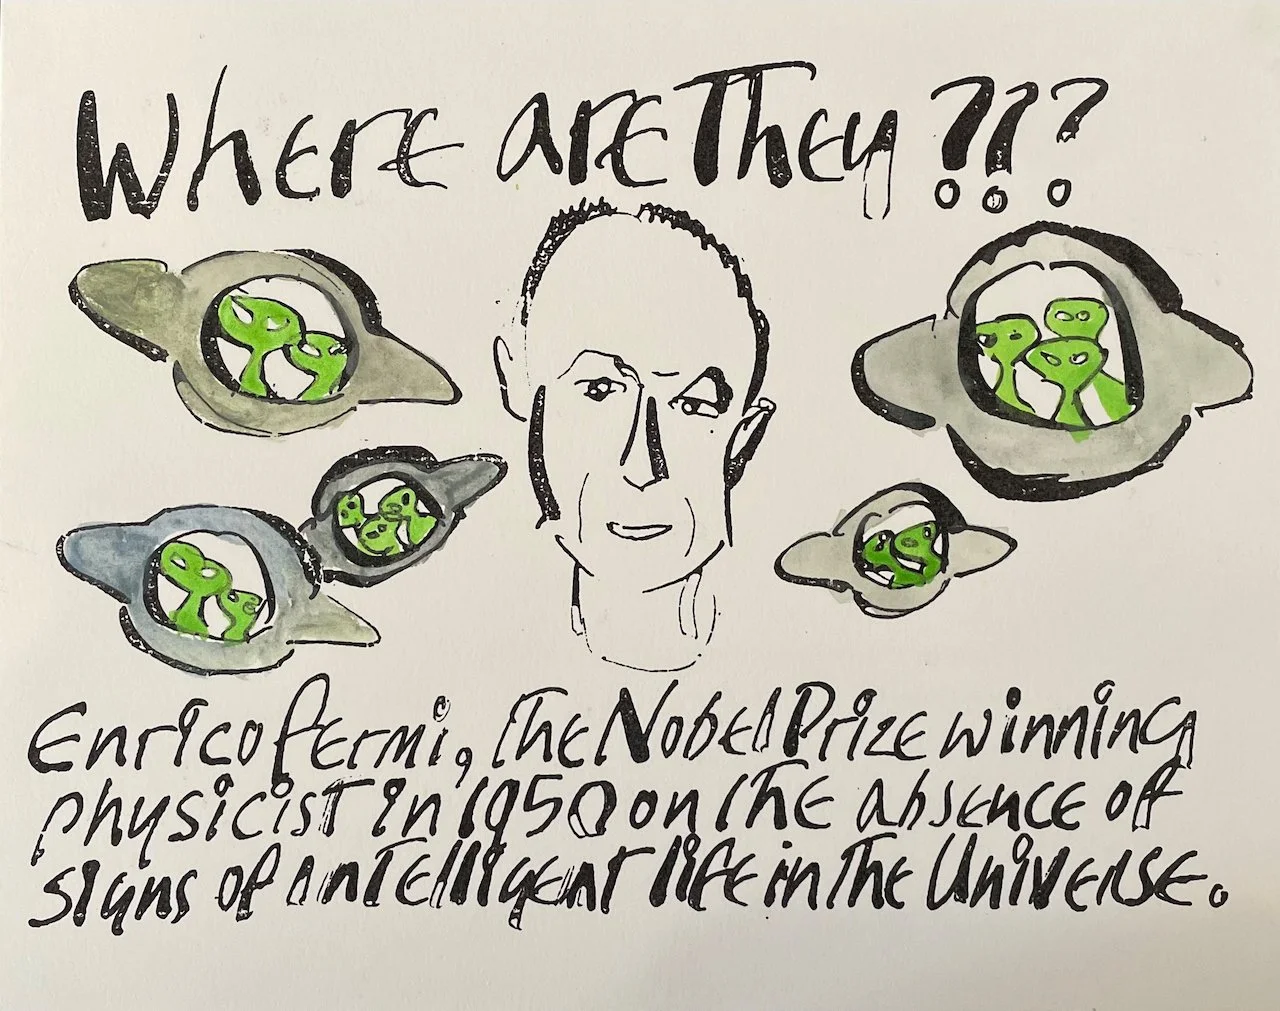 Where are They ???
Enrico Fermi, the Nobel Prize winning
physicist in 1950 on the absence of
signs of intelligent life in the Universe.